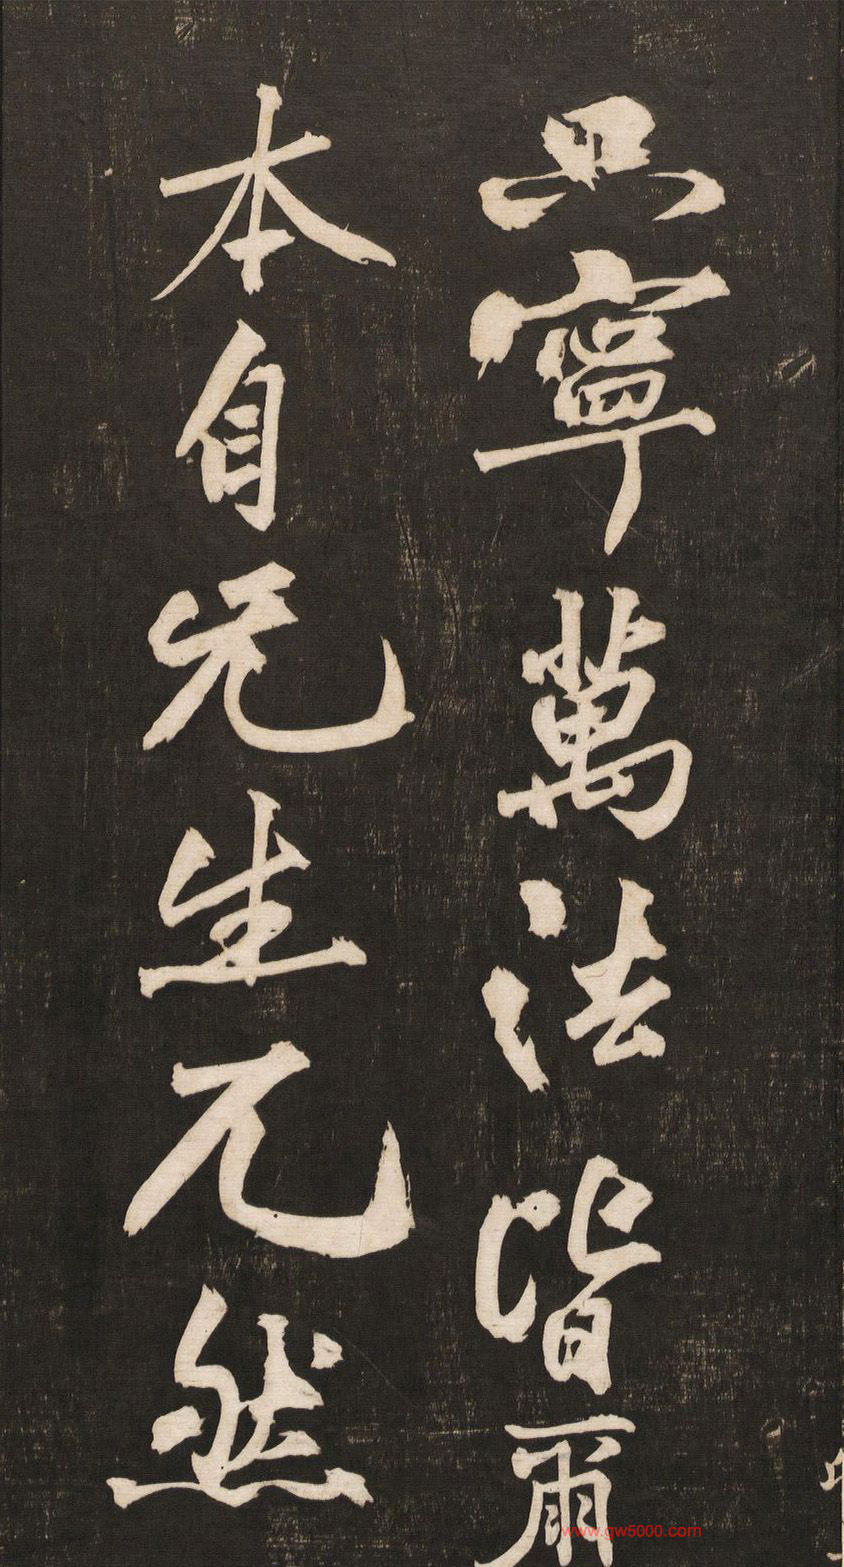 只寧萬法皆爾
本自无生兀然
www.gw5000.com